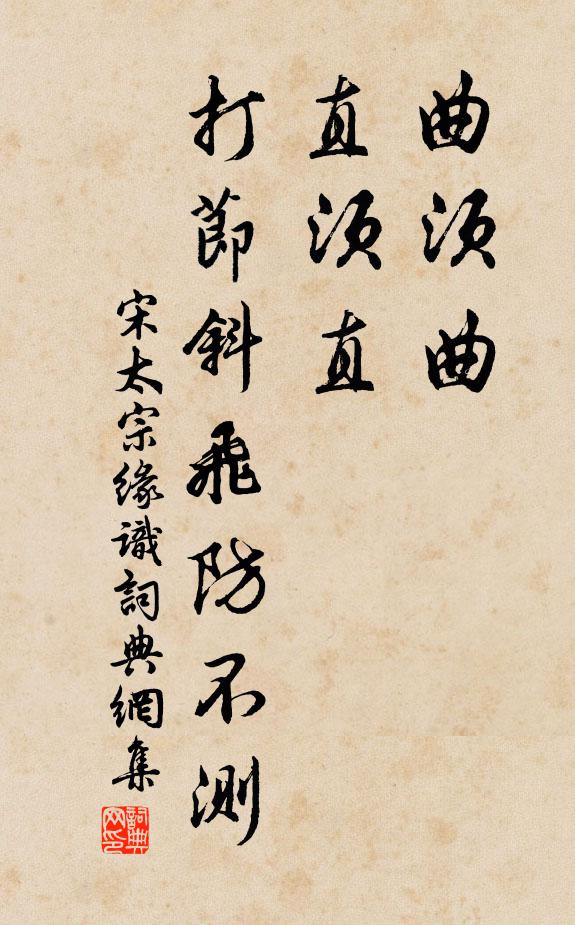 曲須曲
直須直
打節斜飛防不測
宋太宗緣識詞典網集
詞典網印